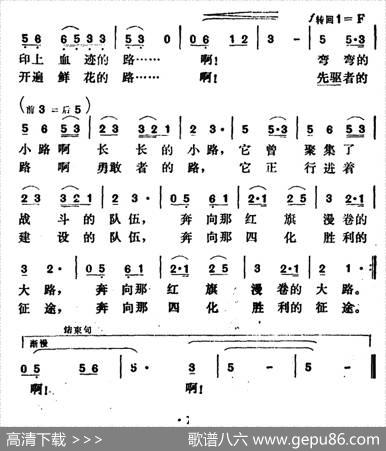 f 转回1=F
5 6 | 6 5 3 3 | 5 3 0 | 0 6 1 2 | 3 - | 5 5·3 |
印上 血 迹的 路…… 啊! 弯 弯的
开遍 鲜 花的 路…… 啊! 先驱者的
(前3=后5)
5 6 5 3 | 2 3 3 2 1 | 2·3 | 5 5·3 | 2·1 2 3 |
小路啊 长 长 的 小路,它 曾 聚集了
路 啊 勇敢 者 的 路,它 正 行进着
2 3 3 2 1 | 2·3· | 0 5 6 1 | 2·1 2 5 | 3 2·1 |
战 斗 的 队伍, 奔 向那 红 旗 漫卷的
建 设 的 队伍, 奔 向那 四 化 胜利的
3 2· | 0 5 6 1 | 2·1 2 5 | 3 2·1 | 2 1· :‖
大 路, 奔 向那 红 旗 漫 卷的 大 路。
征 途, 奔 向那 四 化 胜 利的 征 途。
结束句
渐慢
0 5 5 6 | 5· | 3 5 - | 5 - ‖
啊! 啊!
高清下载 >>>
歌谱八六 www.gepu86.com